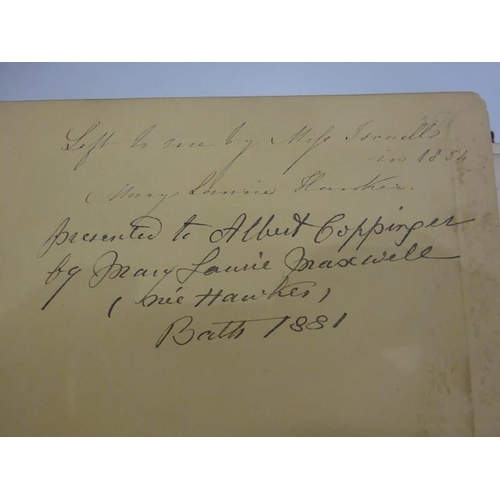 Left to me by Miss
in 1854
Mary Laurie Hawkes.
presented to Albert Coppinger
by Mary Laurie Maxwell
(née Hawkes)
Bath 1881